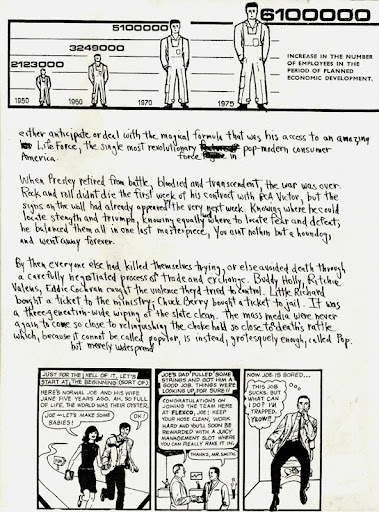 6100000
5100000
3249000
2123000
1950
1960
1970
1975
INCREASE IN THE NUMBER
OF EMPLOYEES IN THE
PERIOD OF PLANNED
ECONOMIC DEVELOPMENT.
either anticipate or deal with the magical formula that was his access to an amazing
Life Force, the single most revolutionary force in pop-modern consumer
America.
When Presley retired from battle, bloodied and transcendent, the war was over.
Rock and roll didnt die the first week of his contract with RCA Victor, but the
signs on the wall had already appeared the very next week. Knowing where he could
locate strength and triumph, knowing equally where to locate fear and defeat,
he balanced them all in one last masterpiece, You aint nothin but a houndog,
and went away forever.
By then everyone else had killed themselves trying, or else avoided death through
a carefully negotiated process of trade and exchange. Buddy Holly, Ritchie
Valens, Eddie Cochran caught the violence they'd tried to control. Little Richard
bought a ticket to the ministry; Chuck Berry bought a ticket to jail. It was
a three-generation-wide wiping of the slate clean. The mass media were never
again to come so close to relinquishing the choke hold so close to death's rattle
which, because it cannot be called popular, is instead, grotesquely enough, called Pop.
but merely widespread
JUST FOR THE HELL OF IT, LET'S
START AT THE BEGINNING (SORT OF).
HERE'S NORMAL JOE AND HIS WIFE
JANE FIVE YEARS AGO. AH, SO FULL
OF LIFE, THE WORLD WAS THEIR OYSTER.
JOE—LET'S MAKE SOME
BABIES!
OK!
JOE'S DAD PULLED SOME
STRINGS AND GOT HIM A
GOOD JOB. THINGS WERE
LOOKING UP, FOR SURE!!
CONGRATULATIONS ON
JOINING THE TEAM HERE
AT FLEXCO, JOE! KEEP
YOUR NOSE CLEAN, WORK
HARD AND YOU'LL SOON BE
REWARDED WITH A JUICY
MANAGEMENT SLOT WHERE
YOU CAN REALLY RAKE IT IN.
THANKS, MR. SMITH.
NOW JOE IS BORED...
THIS JOB
SUCKS, BUT
WHAT CAN
I DO? I'M
TRAPPED.
YEOW!!